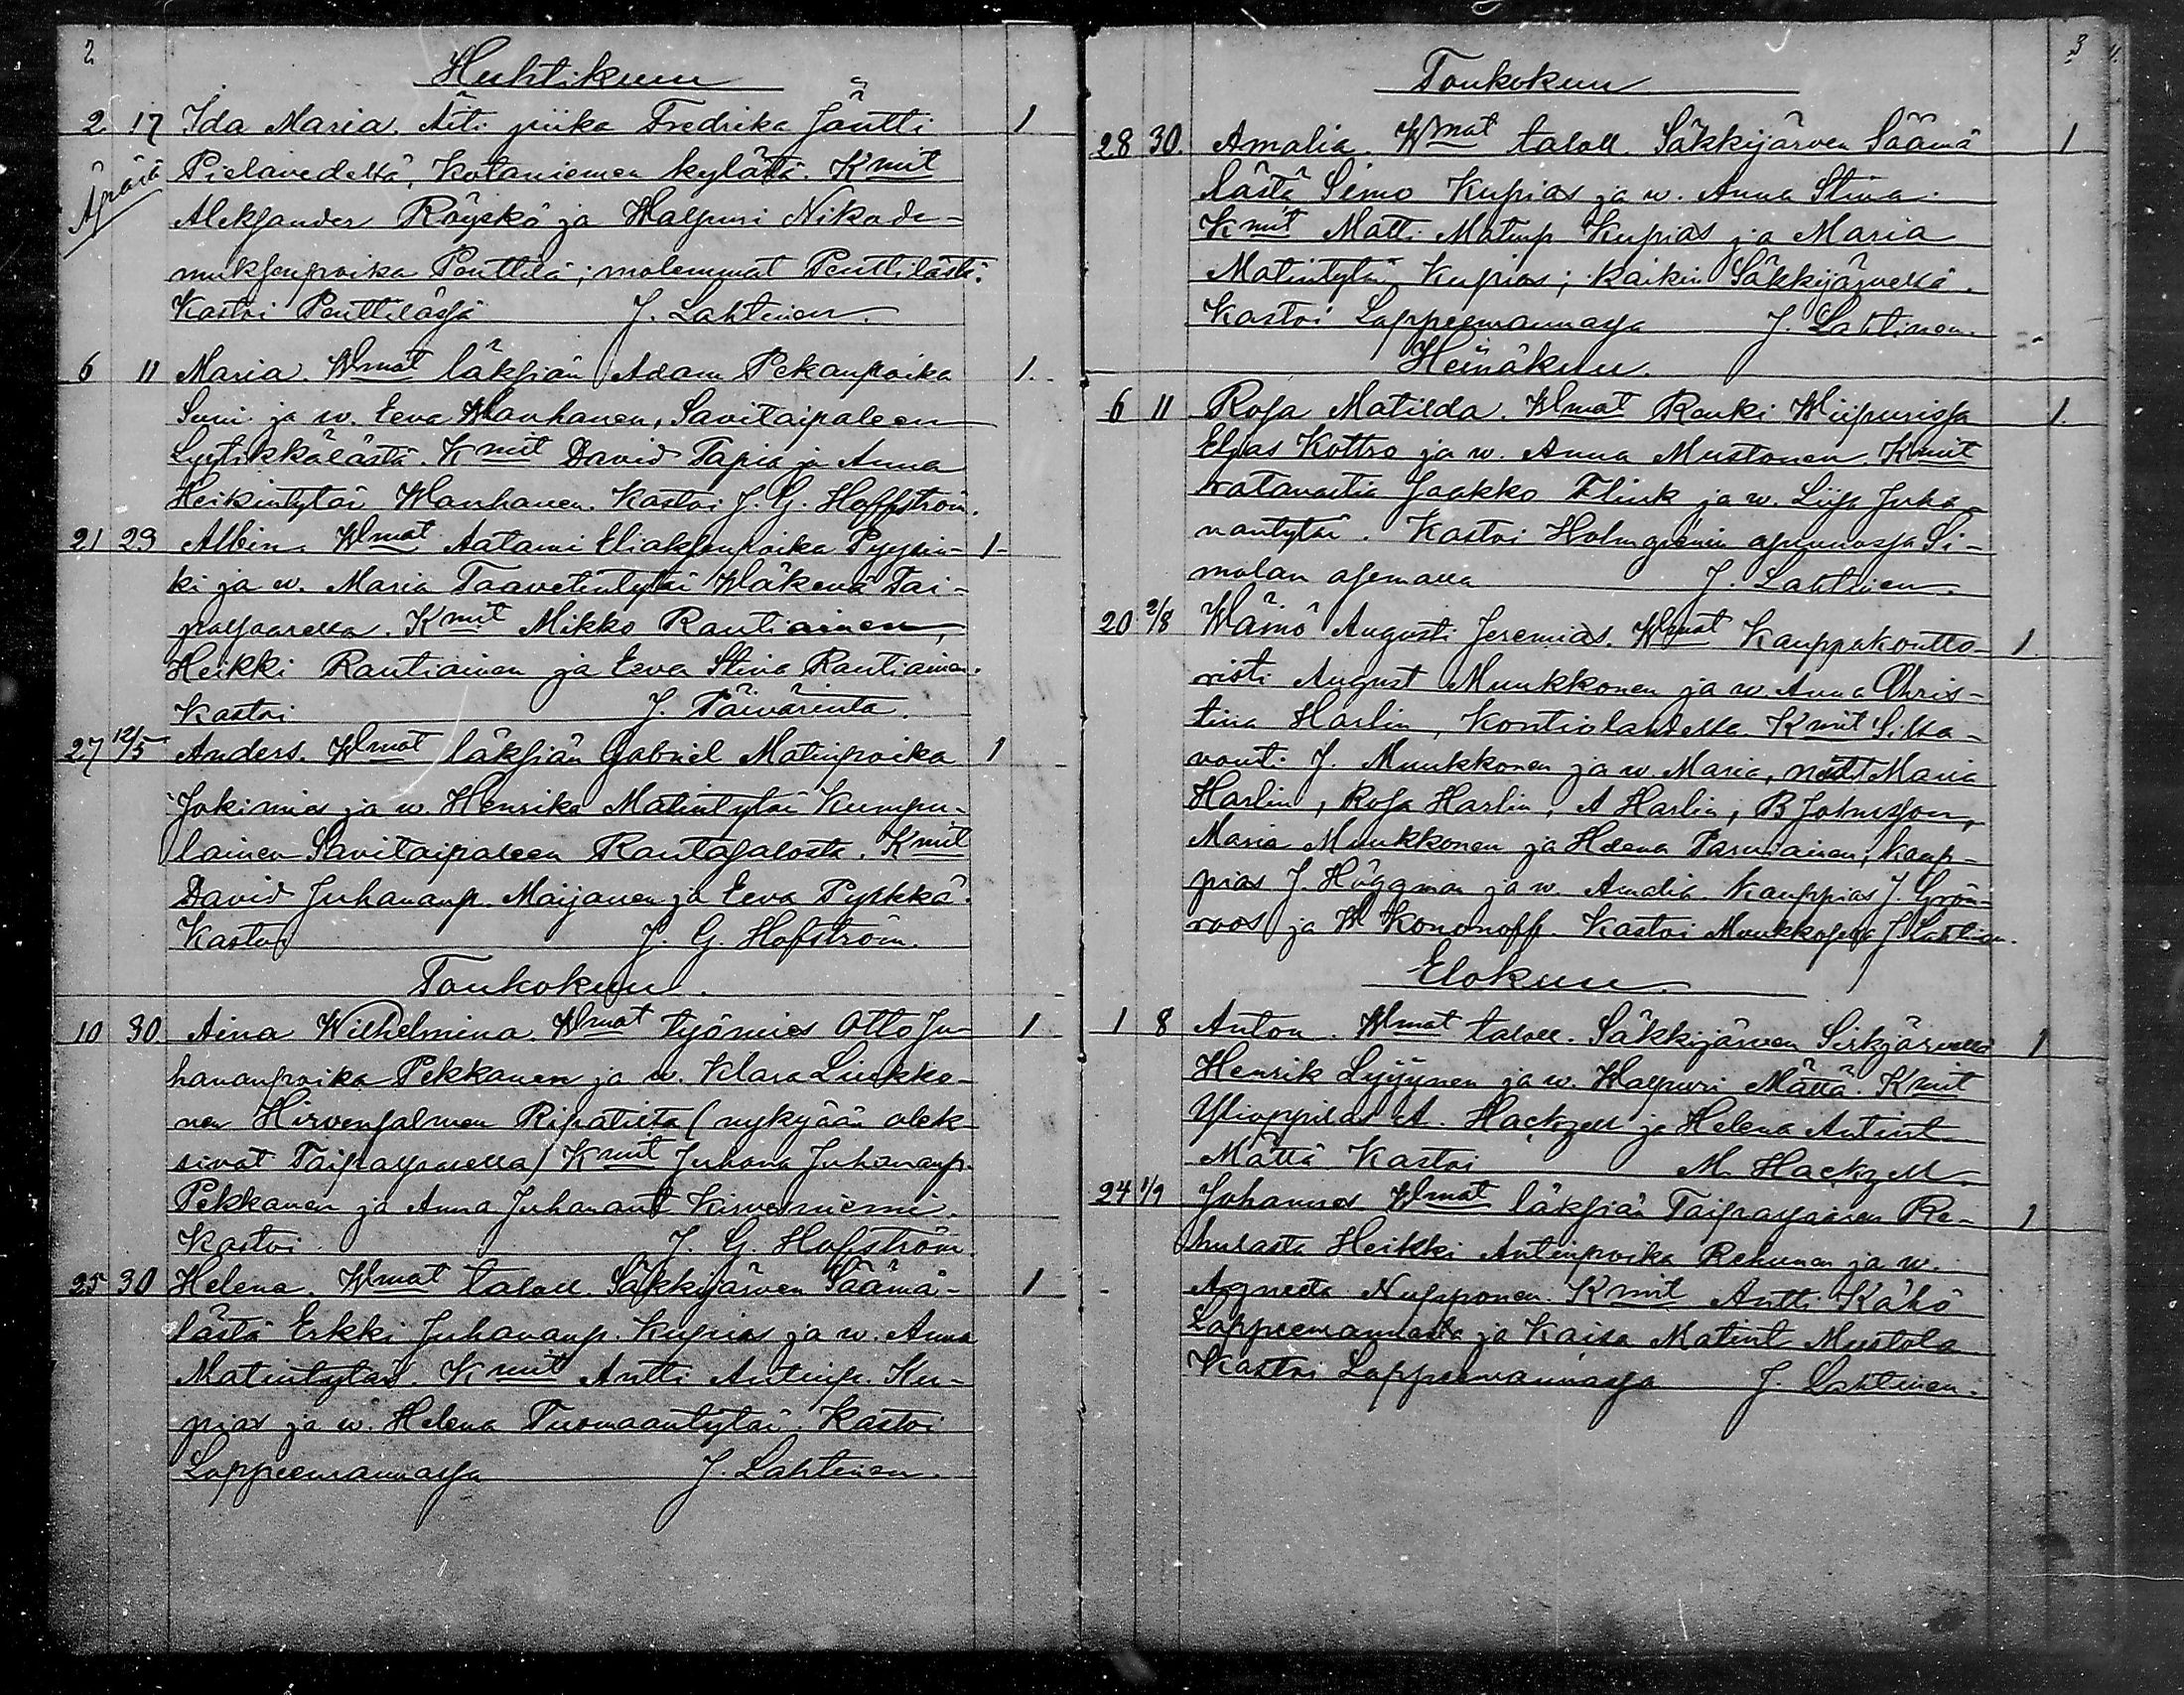 2
Huhtikuu
2. 17 Ida Maria. Äiti piika Fredrika Jäntti 1
Äpärä Pielavedeltä, Kotaniemen kylästä. Kmit
Aleksander Röyskö ja Walpuri Nikode-
muksenpoika Penttilä; molemmat Penttilästä.
Kastoi Penttilässä J. Lahtinen.
6 11 Maria. Wlmat läksiän Adam Pekanpoika 1.
Suni ja w. Eeva Wanhanen, Savitaipaleen
Lyytikkälästä. Kmit David Tapia ja Anna
Heikintytär Wanhanen. Kastoi J. G. Hoffström.
21 29 Albin. Wlmat Aatami Eliaksenpoika Pyysin- 1-
ki ja w. Maria Taavetintytär Wäkevä Tai-
palsaarella. Kmit Mikko Rautiainen,
Heikki Rautiainen ja Eeva Stina Rautiainen.
Kastoi J. Päivärinta.
27 12/5 Anders. Wlmat läksiän Gabriel Matinpoika 1
Jokimies ja w. Henrika Matintytär Kumpu-
lainen Savitaipaleen Rantasalosta. Kmit
David Juhananp. Maijanen ja Eeva Pylkkä.
Kastoi J. G. Hofström.
Toukokuu.
10 30 Aina Wilhelmina. Wlmat työmies Otto Ju- 1
hananpoika Pekkanen ja w. Klara Liukko-
nen Hirvensalmen Ripatista (nykyään olek-
sivat Taipalsaarella) Kmit Juhana Juhananp.
Pekkanen ja Anna Juhanant Kirvesniemi.
Kastoi J. G. Hofström.
25 30 Helena. Wlmat taloll. Säkkijärven Säämä- 1
lästä Erkki Juhananp. Kupias ja w. Anna
Matintytär. Kmit Antti Antinp. Ku-
pias ja w. Helena Tuomaantytär. Kastoi
Lappeenrannassa J. Lahtinen.
3
Toukokuu
28 30. Amalia. Wlmat taloll. Säkkijärven Säämä 1
lästä Simo Kupias ja w. Anna Stina.
Kmit Matti Matinp Kupias ja Maria
Matintytär Kupias; kaikki Säkkijärveltä.
Kastoi Lappeenrannassa J. Lahtinen.
Heinäkuu.
6 11 Rosa Matilda. Wlmat Renki Wiipurissa 1.
Elias Kottro ja w. Anna Mustonen. Kmit
ratavartia Jaakko Flink ja w. Liisa Juha-
nantytär. Kastoi Holmgrénin asunnossa Si-
molan asemalla J. Lahtinen.
20 2/8 Wäinö Augusti Jeremias. Wlmat Kauppakontto- 1.
risti August Muukkonen ja w. Anna Chris-
tina Harlin, Kontiolahdella. Kmit Silta-
vouti J. Muukkonen ja w. Maria, Maria
Harlin, Rosa Harlin, A Harlin, B Johnsson,
Maria Muukkonen ja Helena Parviainen, kaup-
pias J. Häggman ja w. Amalia. Kauppias J. Grön-
roos ja W Kononoff. Kastoi J Lahtinen.
Elokuu.
1 8 Anton. Wlmat taloll. Säkkijärven Sirkjärveltä 1
Henrik Lyyynen ja w. Walpuri Mättä. Kmit
Ylioppilas A. Hackzell ja Helena Antint
Mättä Kastoi M. Hackzell.
24 1/9 Johannes Wlmat läksiän Taipalsaaren Re- 1
hulasta Heikki Antinpoika Rehunen ja w.
Agneeta Nupponen. Kmit Antti Kähö
Lappeenrannasta ja Kaisa Matint Mustola
Kastoi Lappeenrannassa J. Lahtinen.